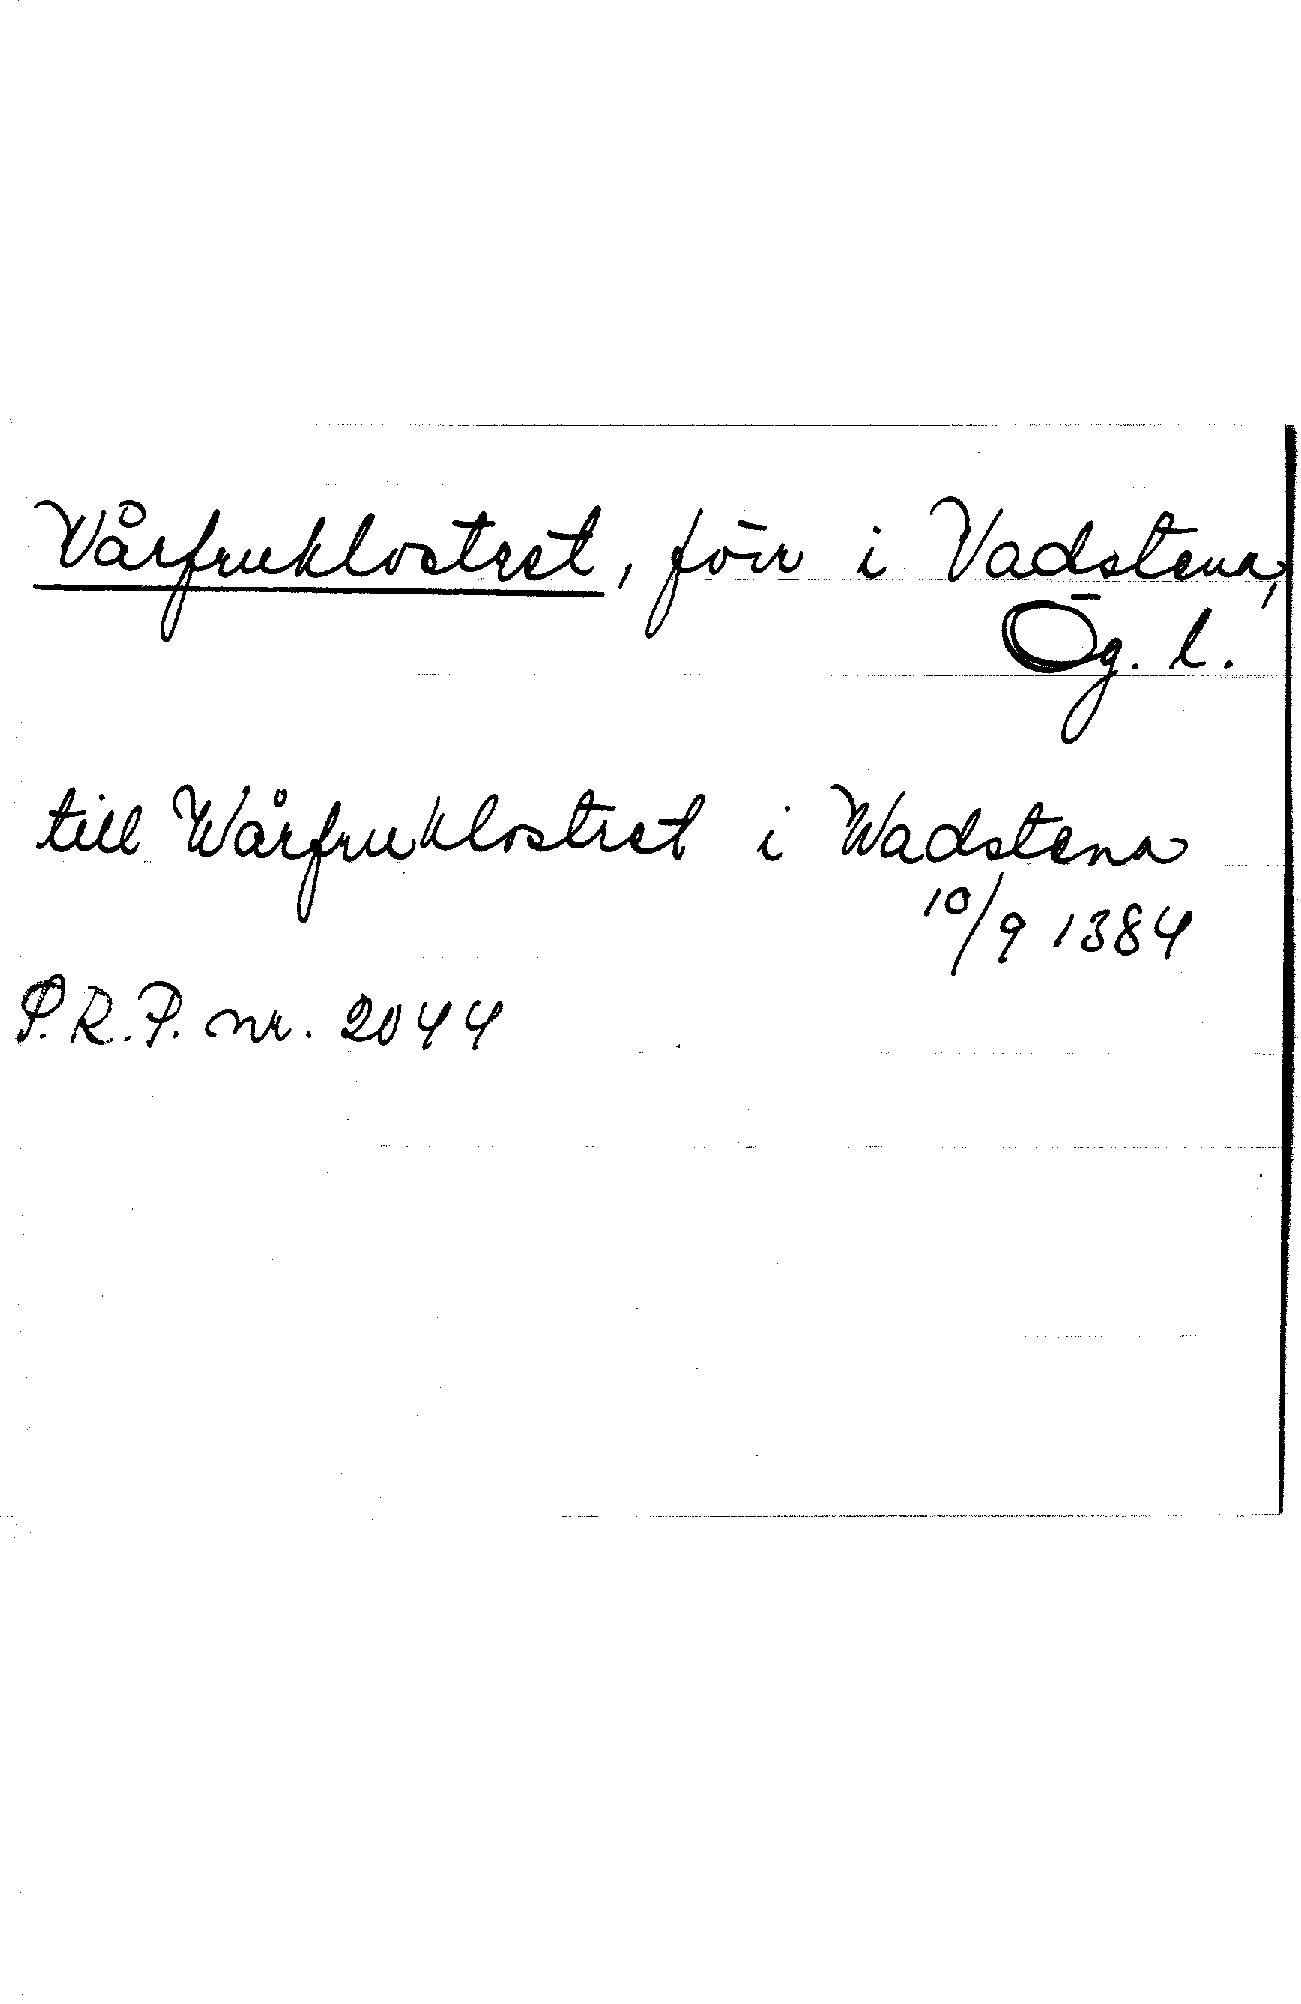 Vårfruklostret, förr i Vadstena,
Ög. l.
till Wårfruklostret i Wadstena
10/9 1384
P.R.P. nr. 2044